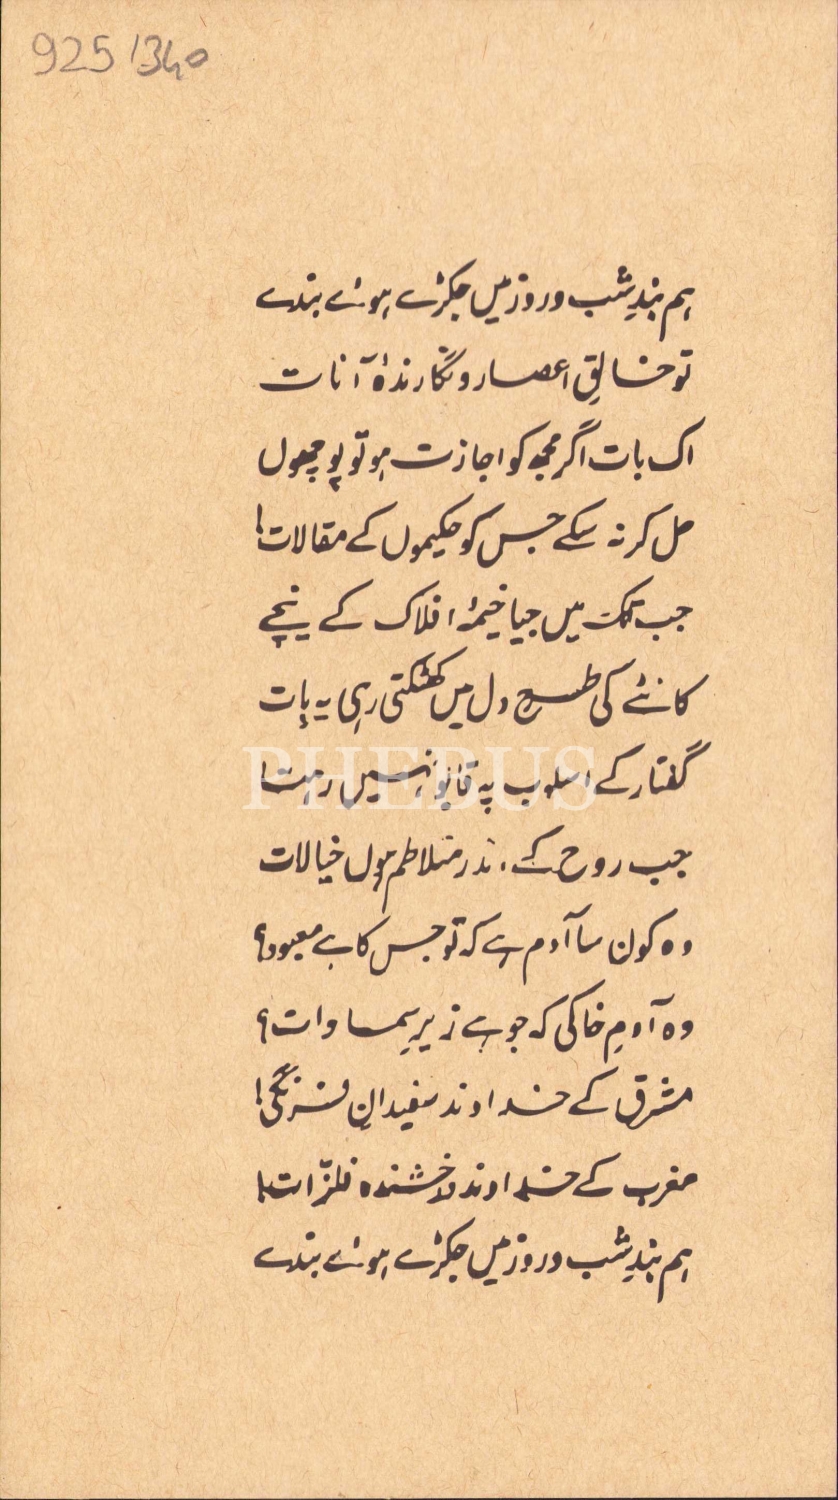 925 / 340
ہم بندِ شب و روز میں جکڑے ہوئے بندے
تو خالقِ اعصار و نگارندۂ آنات
اک بات اگر مجھ کو اجازت ہو تو پوچھوں
حل کر نہ سکے جس کو حکیموں کے مقالات!
جب تک میں جیا خیمۂ افلاک کے نیچے
کانٹے کی طرح دل میں کھٹکتی رہی یہ بات
گفتار کے اسلوب پہ قابو نہیں رہتا
PHEBUS
جب روح کے اندر متلاطم ہوں خیالات
وہ کون سا آدم ہے کہ تو جس کا ہے معبود؟
وہ آدمِ خاکی کہ جو ہے زیرِ سماوات؟
مشرق کے خداوند سفیدانِ فرنگی!
مغرب کے خداوند درخشندہ فلزّات!
ہم بندِ شب و روز میں جکڑے ہوئے بندے